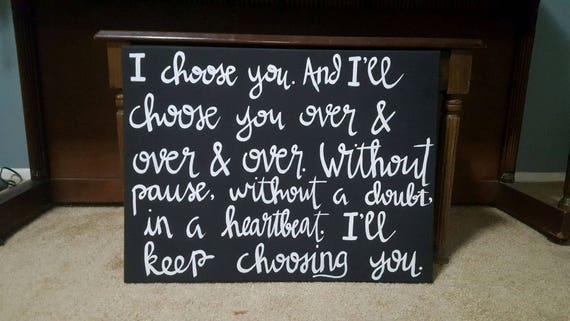 I choose you. And I'll
choose you over &
over & over. Without
pause, without a doubt,
in a heartbeat. I'll
keep choosing you.